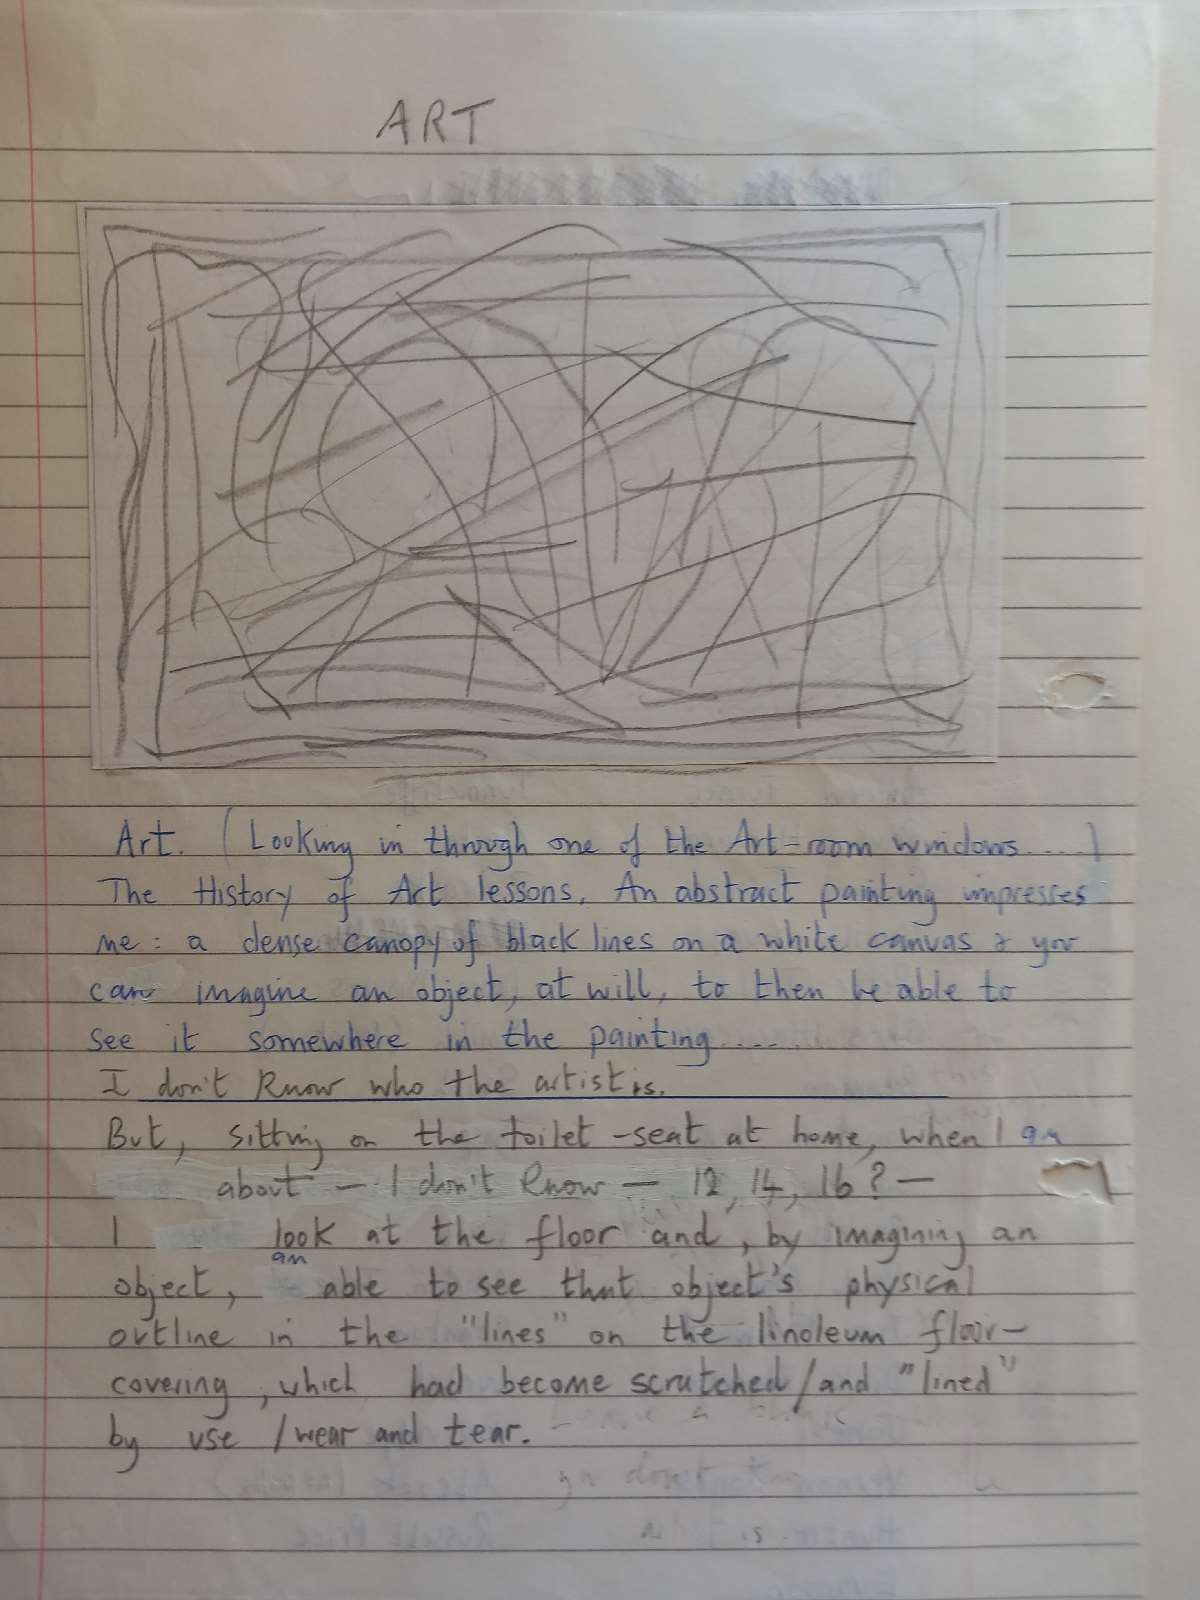 ART
Art. (Looking in through one of the Art-room windows....)
The History of Art lessons. An abstract painting impresses
me: a dense canopy of black lines on a white canvas & you
can imagine an object, at will, to then be able to
see it somewhere in the painting.....
I don't know who the artist is.
But, sitting on the toilet-seat at home, when I am
about — I don't know — 12, 14, 16? —
I look at the floor and, by imagining an
object, am able to see that object's physical
outline in the "lines" on the linoleum floor-
covering, which had become scratched/and "lined"
by use/wear and tear.